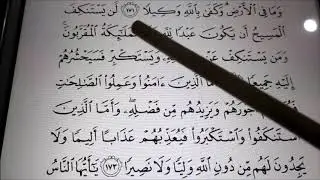 وَمَا فِي الْأَرْضِ وَكَفَىٰ بِاللَّهِ وَكِيلًا ١٧١ لَّن يَسْتَنكِفَ
الْمَسِيحُ أَن يَكُونَ عَبْدًا لِّلَّهِ الْمَلَٰٓئِكَةُ الْمُقَرَّبُونَ
وَمَن يَسْتَنكِفْ عَنْ وَيَسْتَكْبِرْ فَسَيَحْشُرُهُمْ
إِلَيْهِ جَمِيعًا الَّذِينَ ءَامَنُوا وَعَمِلُوا الصَّٰلِحَٰتِ
أُجُورَهُمْ وَيَزِيدُهُم مِّن فَضْلِهِ وَأَمَّا الَّذِينَ
اسْتَنكَفُوا وَاسْتَكْبَرُوا فَيُعَذِّبُهُمْ عَذَابًا أَلِيمًا وَلَا
يَجِدُونَ لَهُم مِّن دُونِ اللَّهِ وَلِيًّا وَلَا نَصِيرًا ١٧٣ يَٰٓأَيُّهَا النَّاسُ